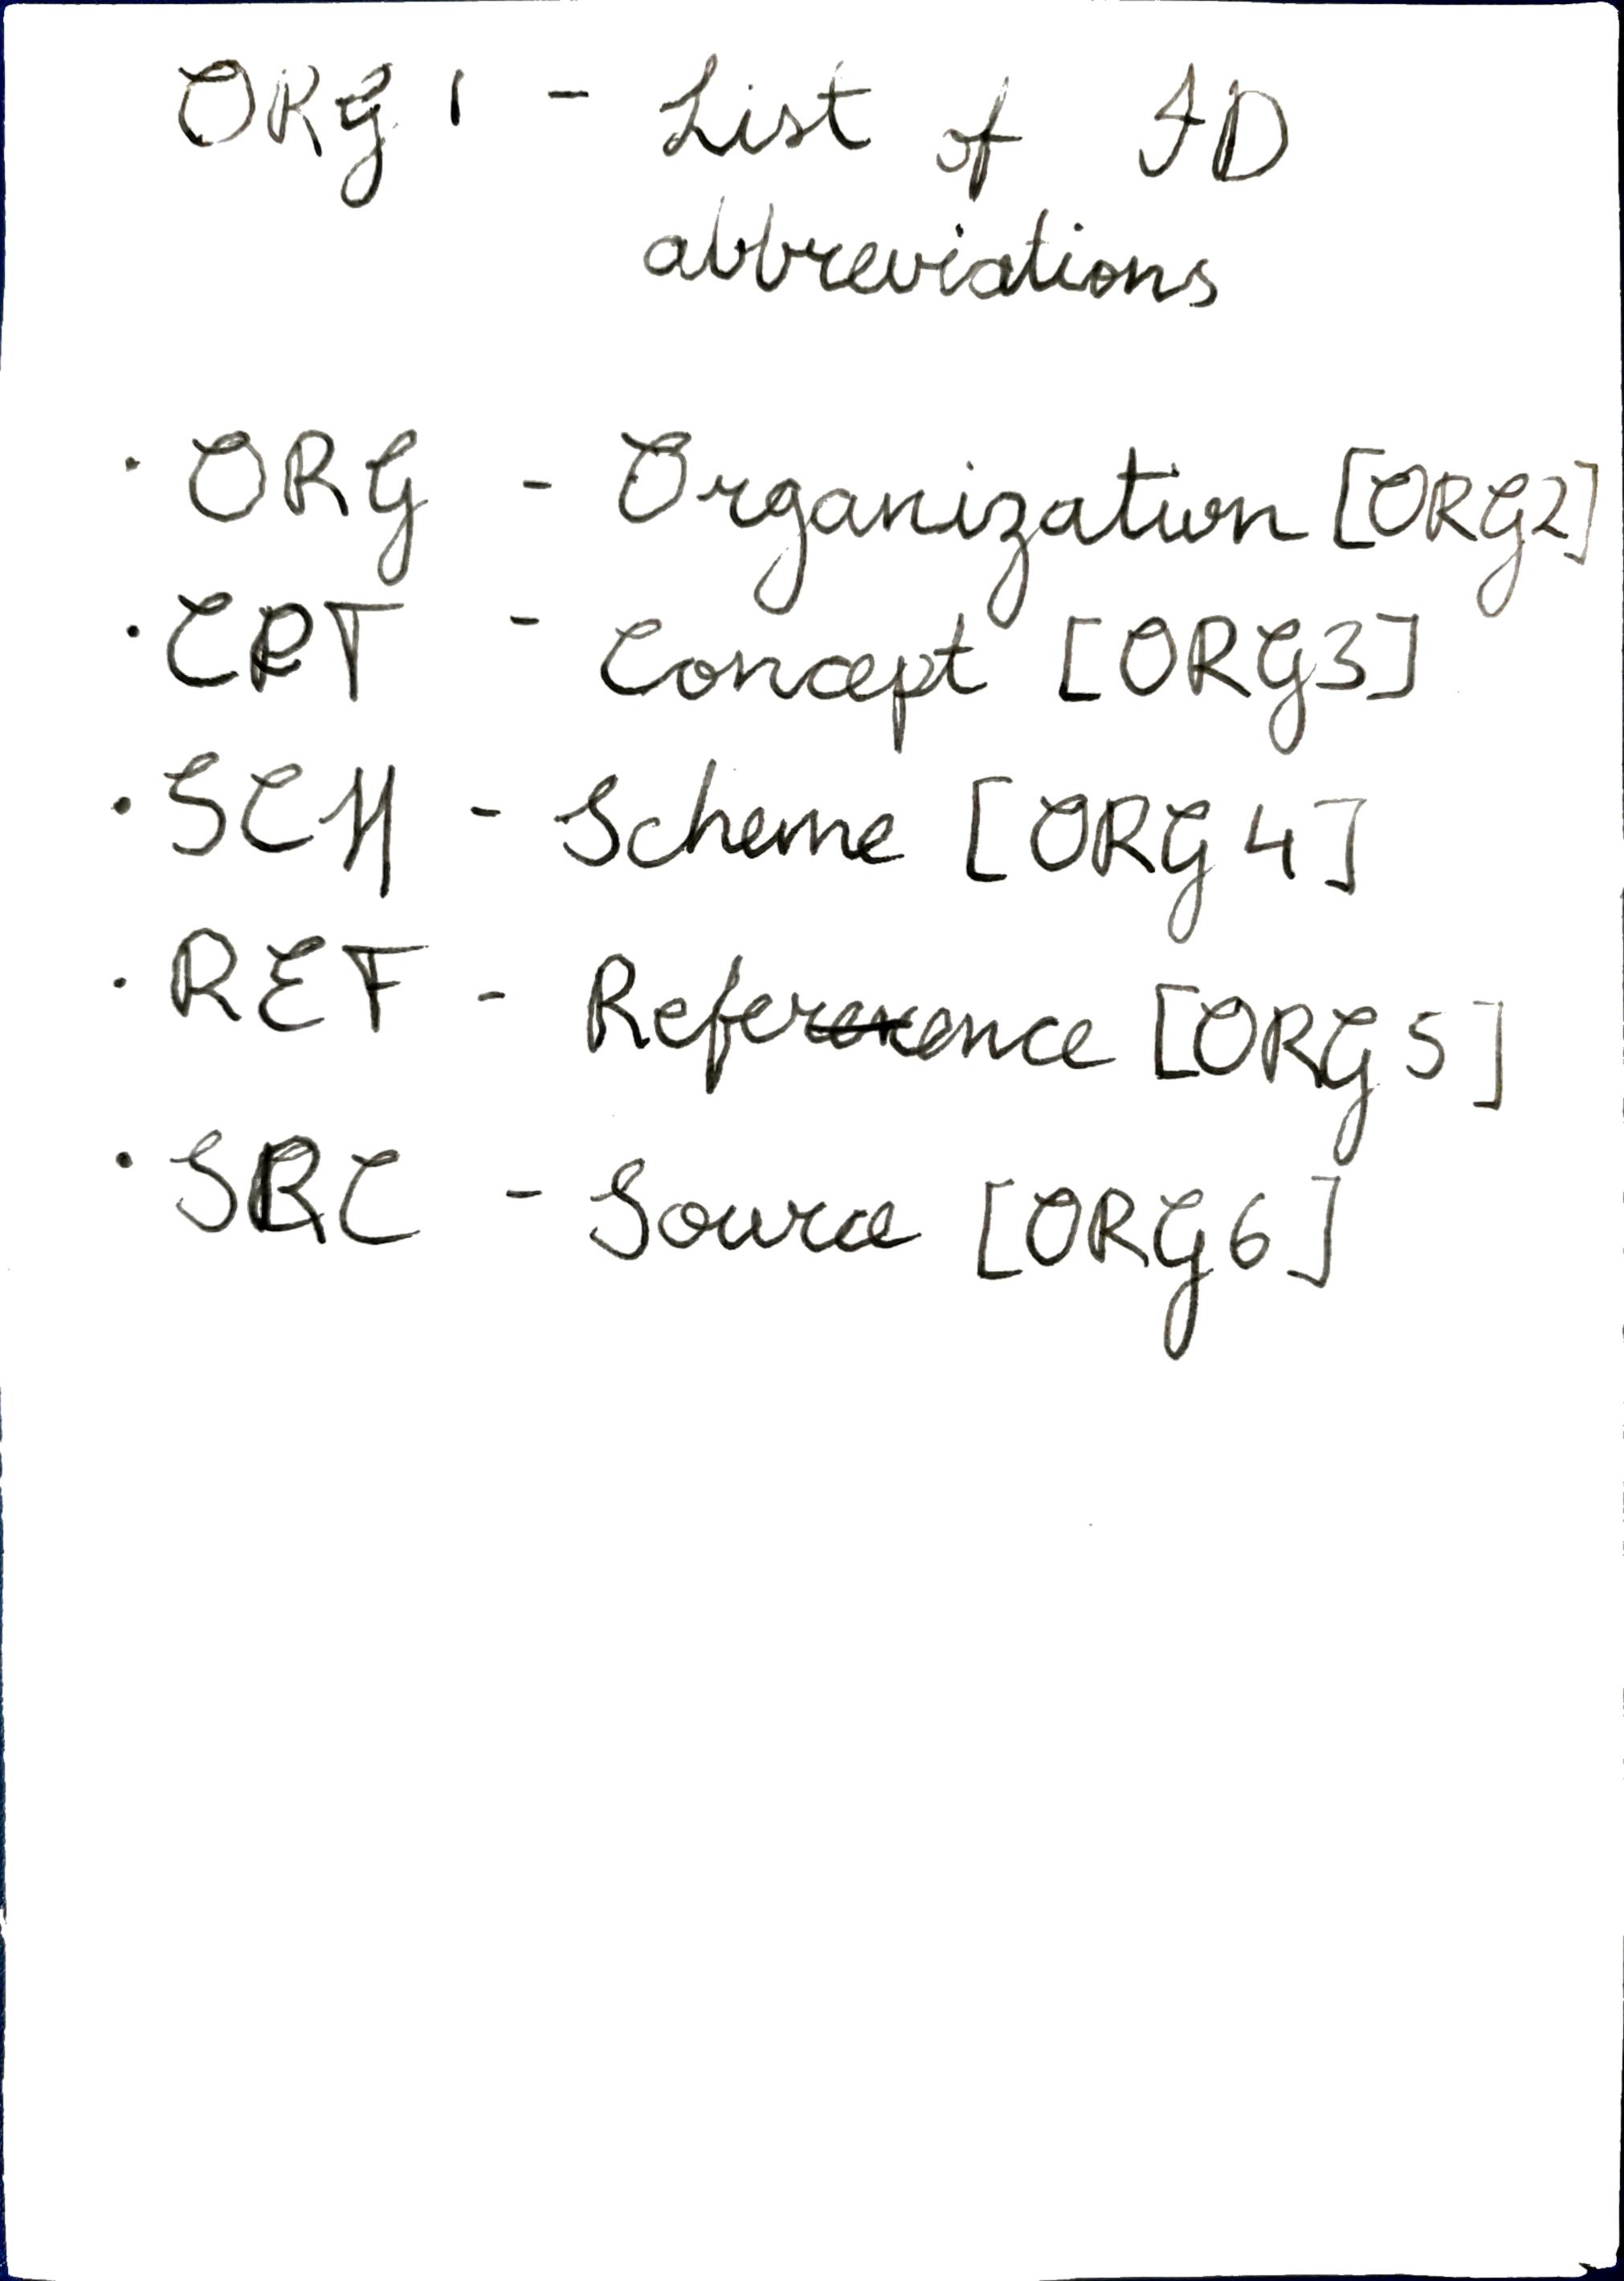 ORG 1 - List of ID
abbreviations
· ORG - Organization [ORG2]
· CPT - Concept [ORG3]
· SCH - Scheme [ORG 4]
· REF - Reference [ORG 5]
· SRC - Source [ORG6]